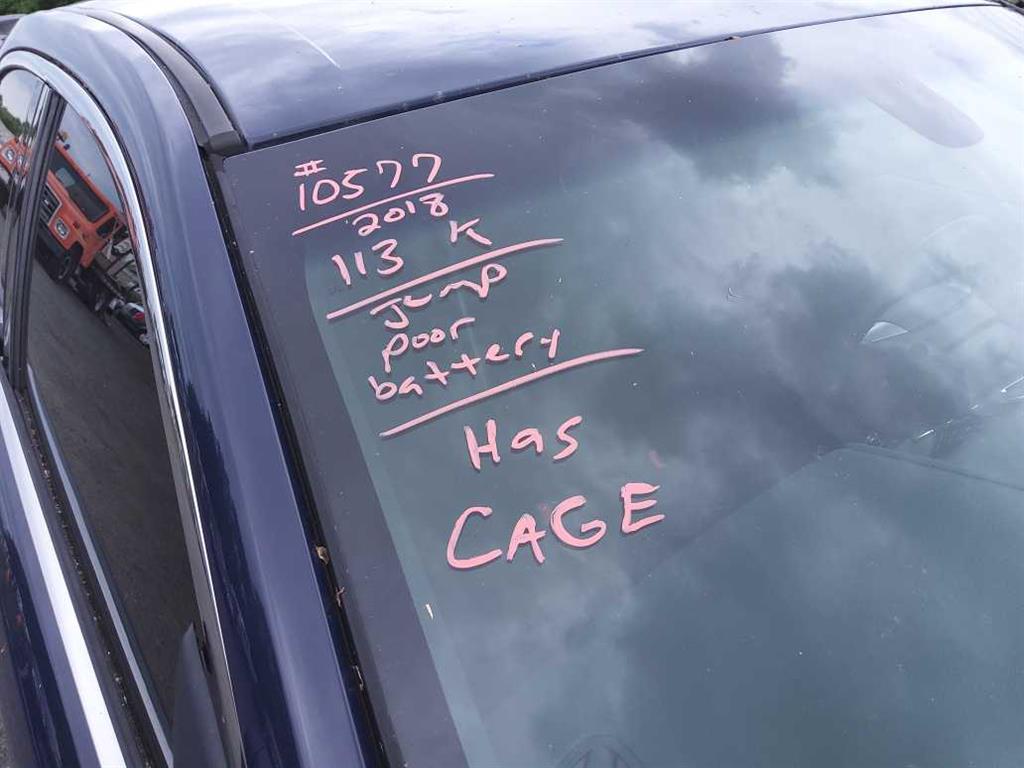 #
10577
2018
113 K
Jump
poor
battery
Has
CAGE